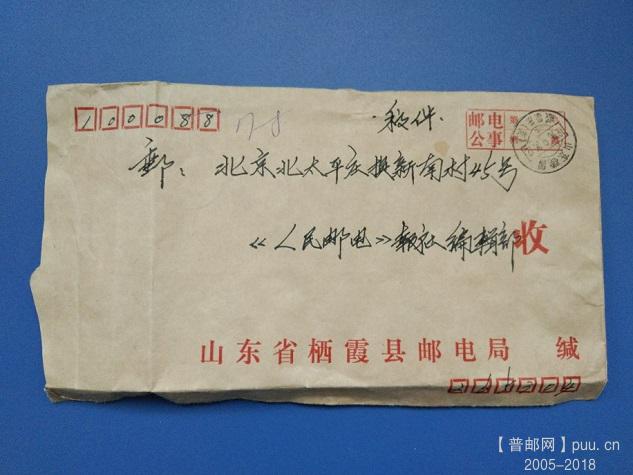 100088
稿件.
邮电
公事
邮: 北京北太平庄焕新南村45号
《人民邮电》报社编辑部收
山东省栖霞县邮电局 缄
【普邮网】puu.cn
2005-2018